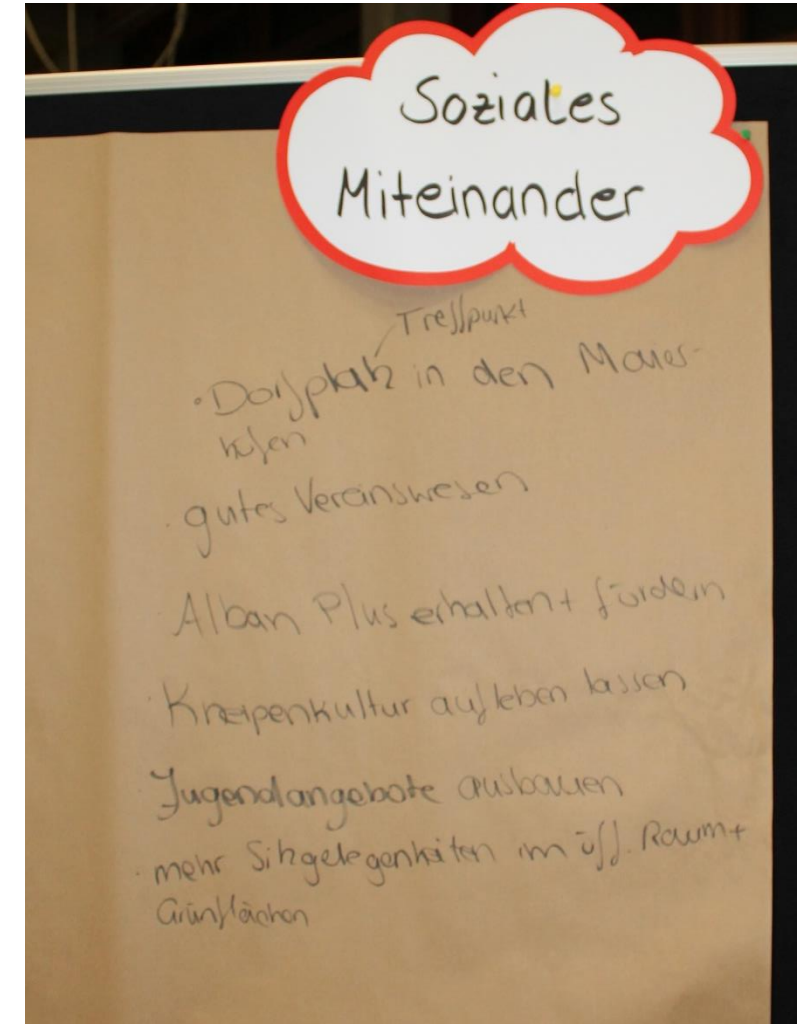 Soziales
Miteinander
Treffpunkt
• Dorfplatz in den Maier-
höfen
· gutes Vereinswesen
Alban Plus erhalten + fördern
· Kneipenkultur aufleben lassen
· Jugendangebote ausbauen
· mehr Sitzgelegenheiten im öff. Raum +
Grünflächen